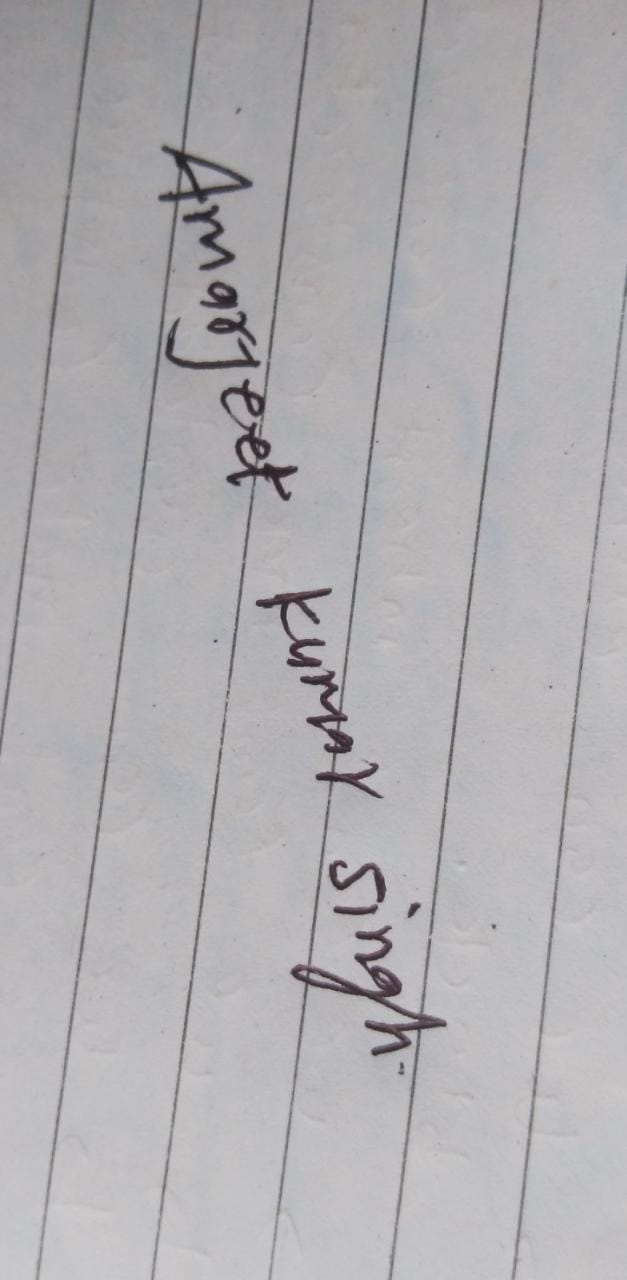 Amarjeet kumar singh.